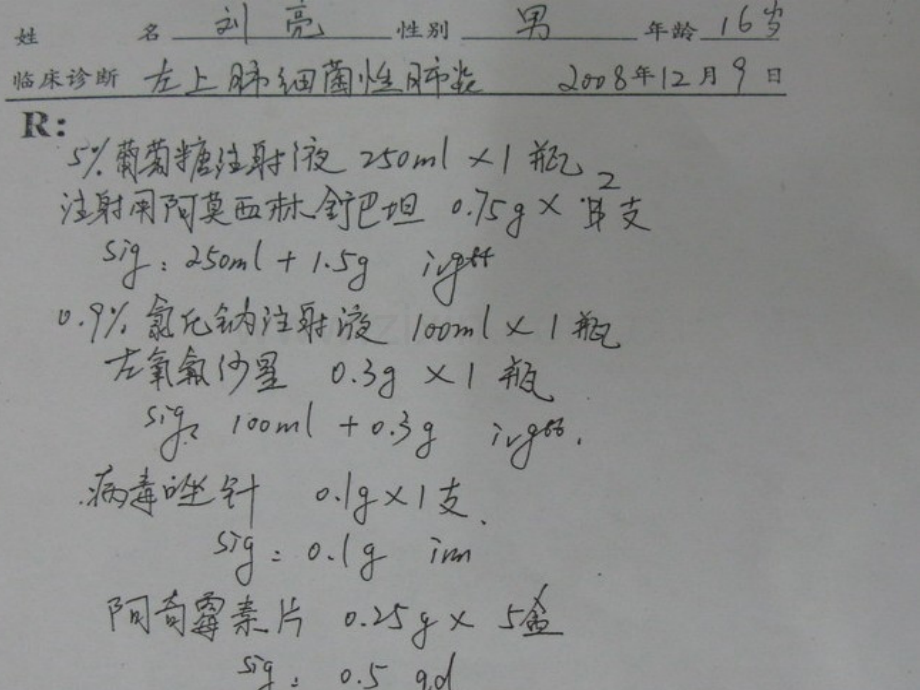 姓 名 刘亮 性别 男 年龄 16岁
临床诊断 左上肺细菌性肺炎 2008年12月9日
R:
5% 葡萄糖注射液 250ml × 1 瓶
注射用阿莫西林舒巴坦 0.75g × 2 支
sig: 250ml + 1.5g ivgtt
0.9% 氯化钠注射液 100ml × 1 瓶
左氧氟沙星 0.3g × 1 瓶
sig: 100ml + 0.3g ivgtt.
病毒唑针 0.1g × 1支.
sig: 0.1g im
阿奇霉素片 0.25g × 5盒
sig: 0.5 qd